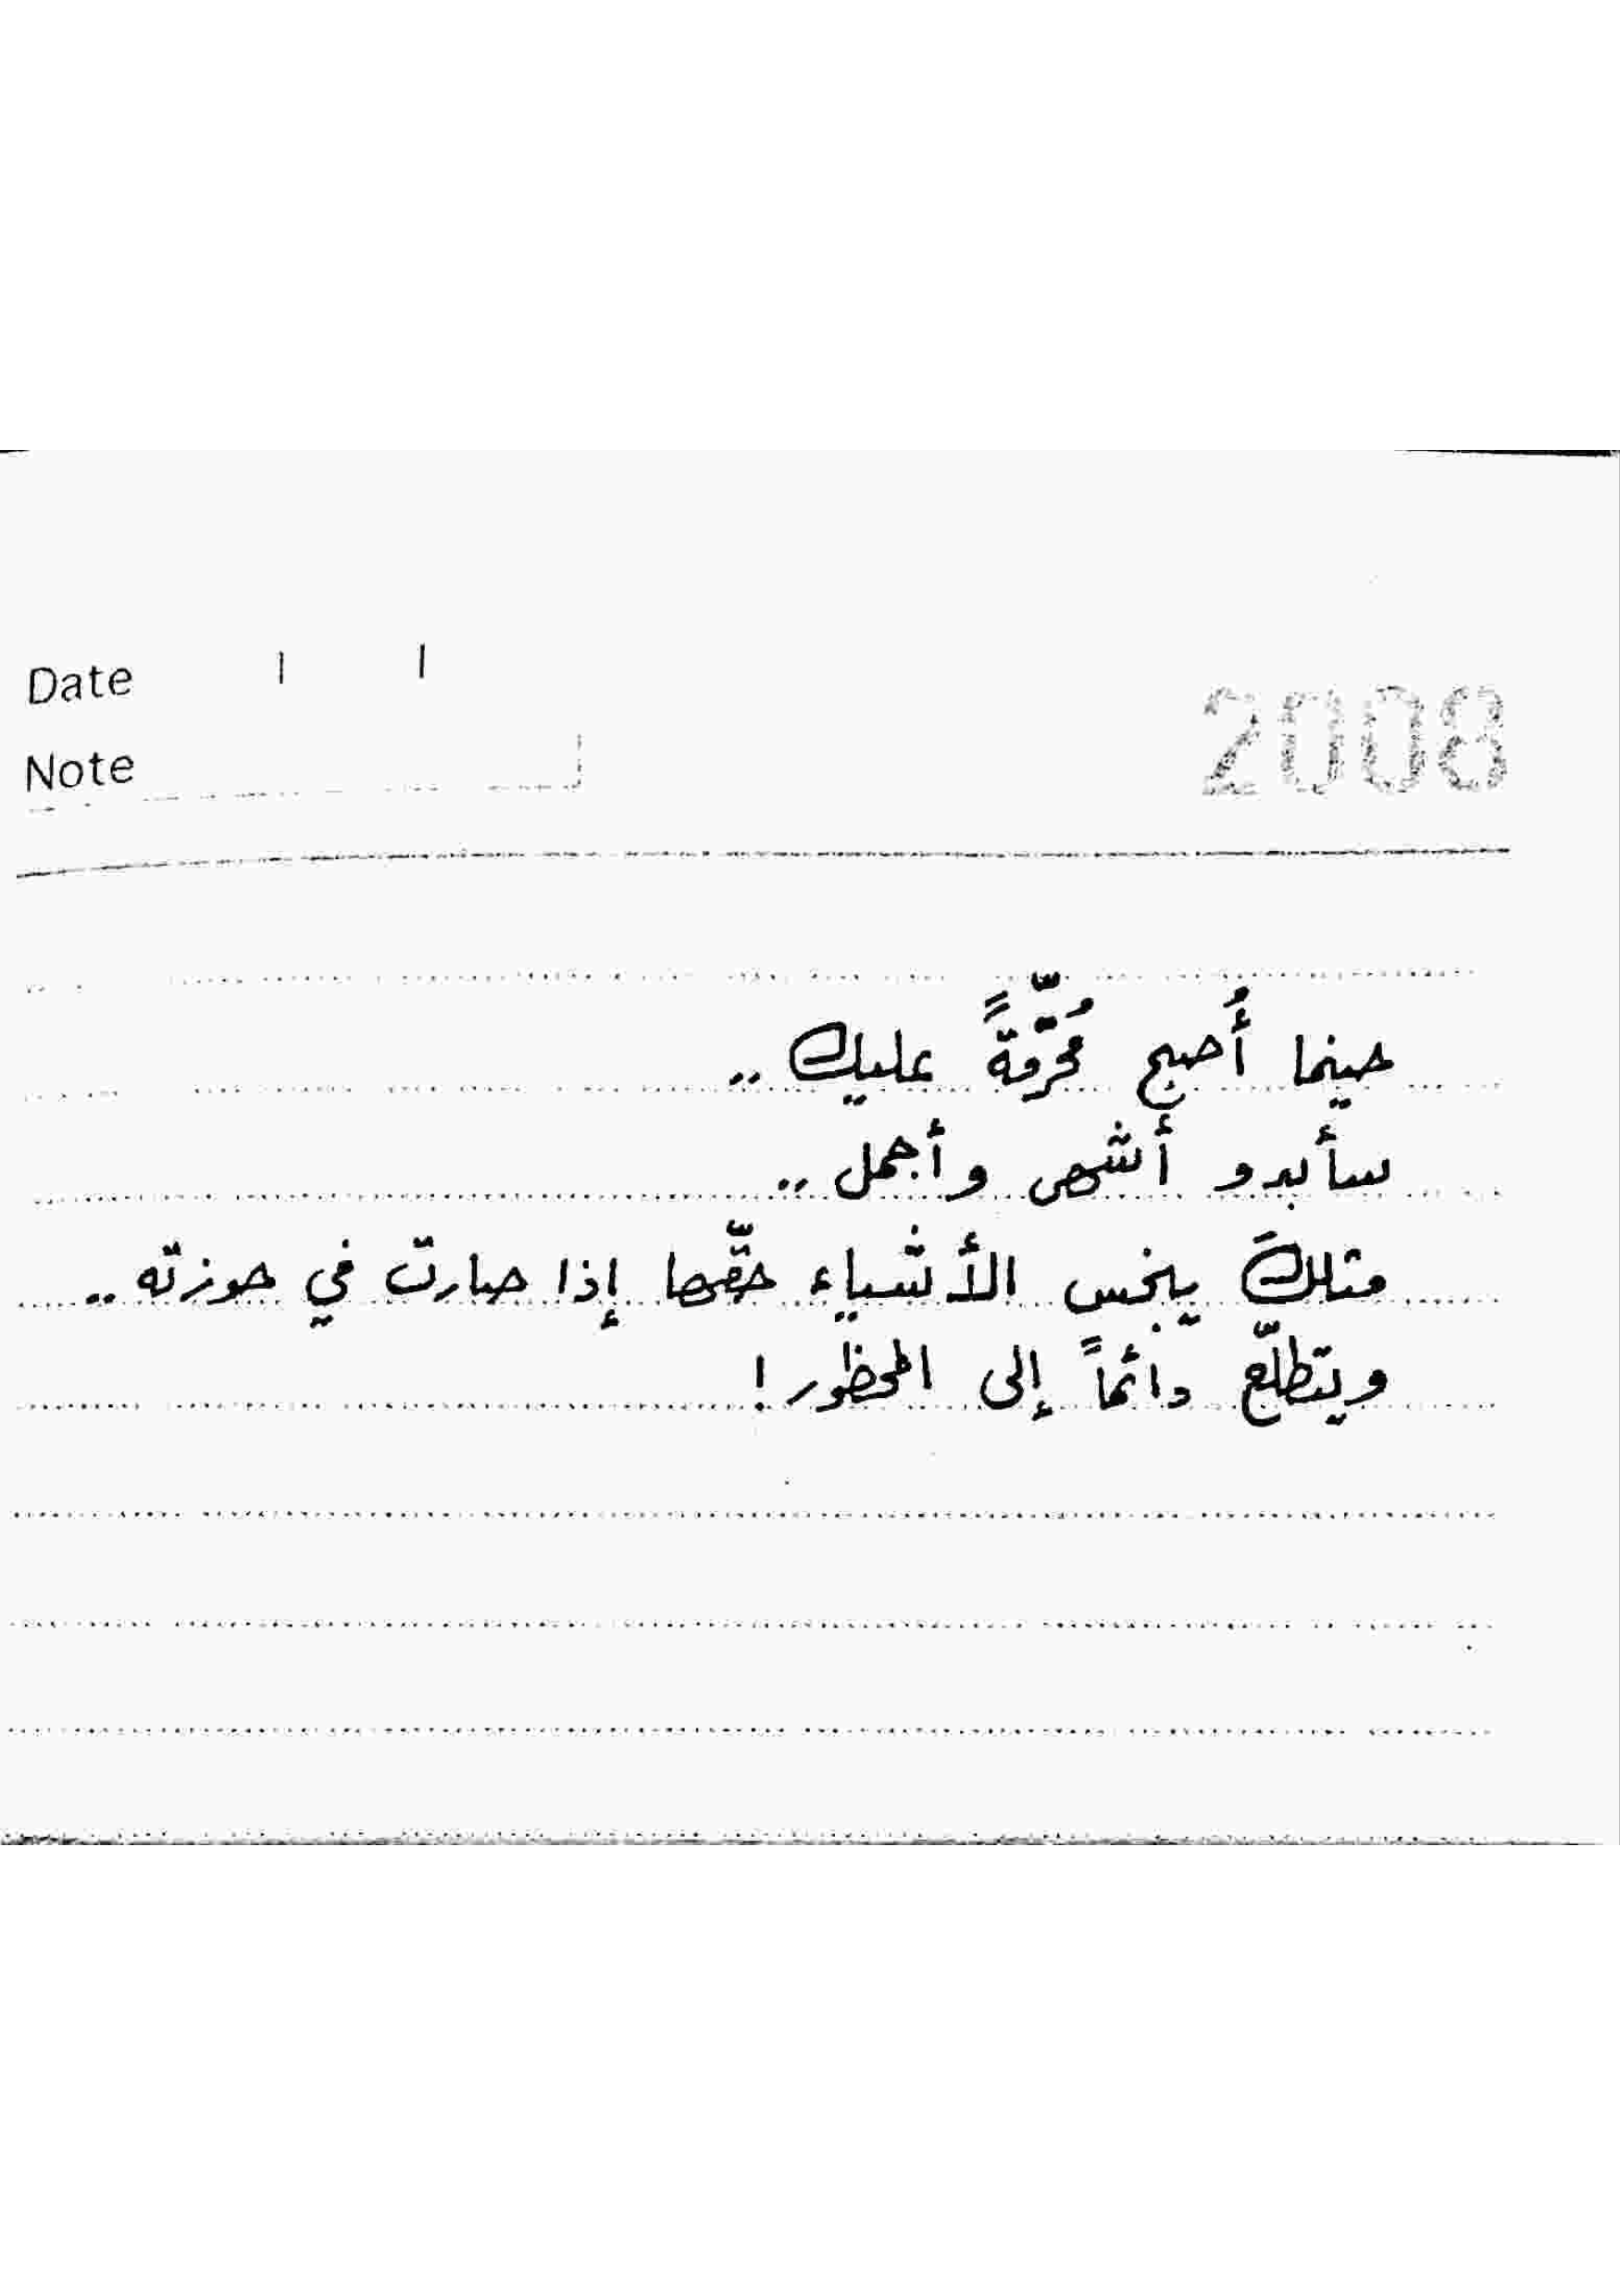 Date / /
2008
Note
حينما أُصبح مُحرّمةً عليك ..
سأبدو أشهى وأجمل ..
مثلكَ يبخس الأشياء حقّها إذا صارت في حوزته ..
ويتطلّع دائماً إلى المحظور !